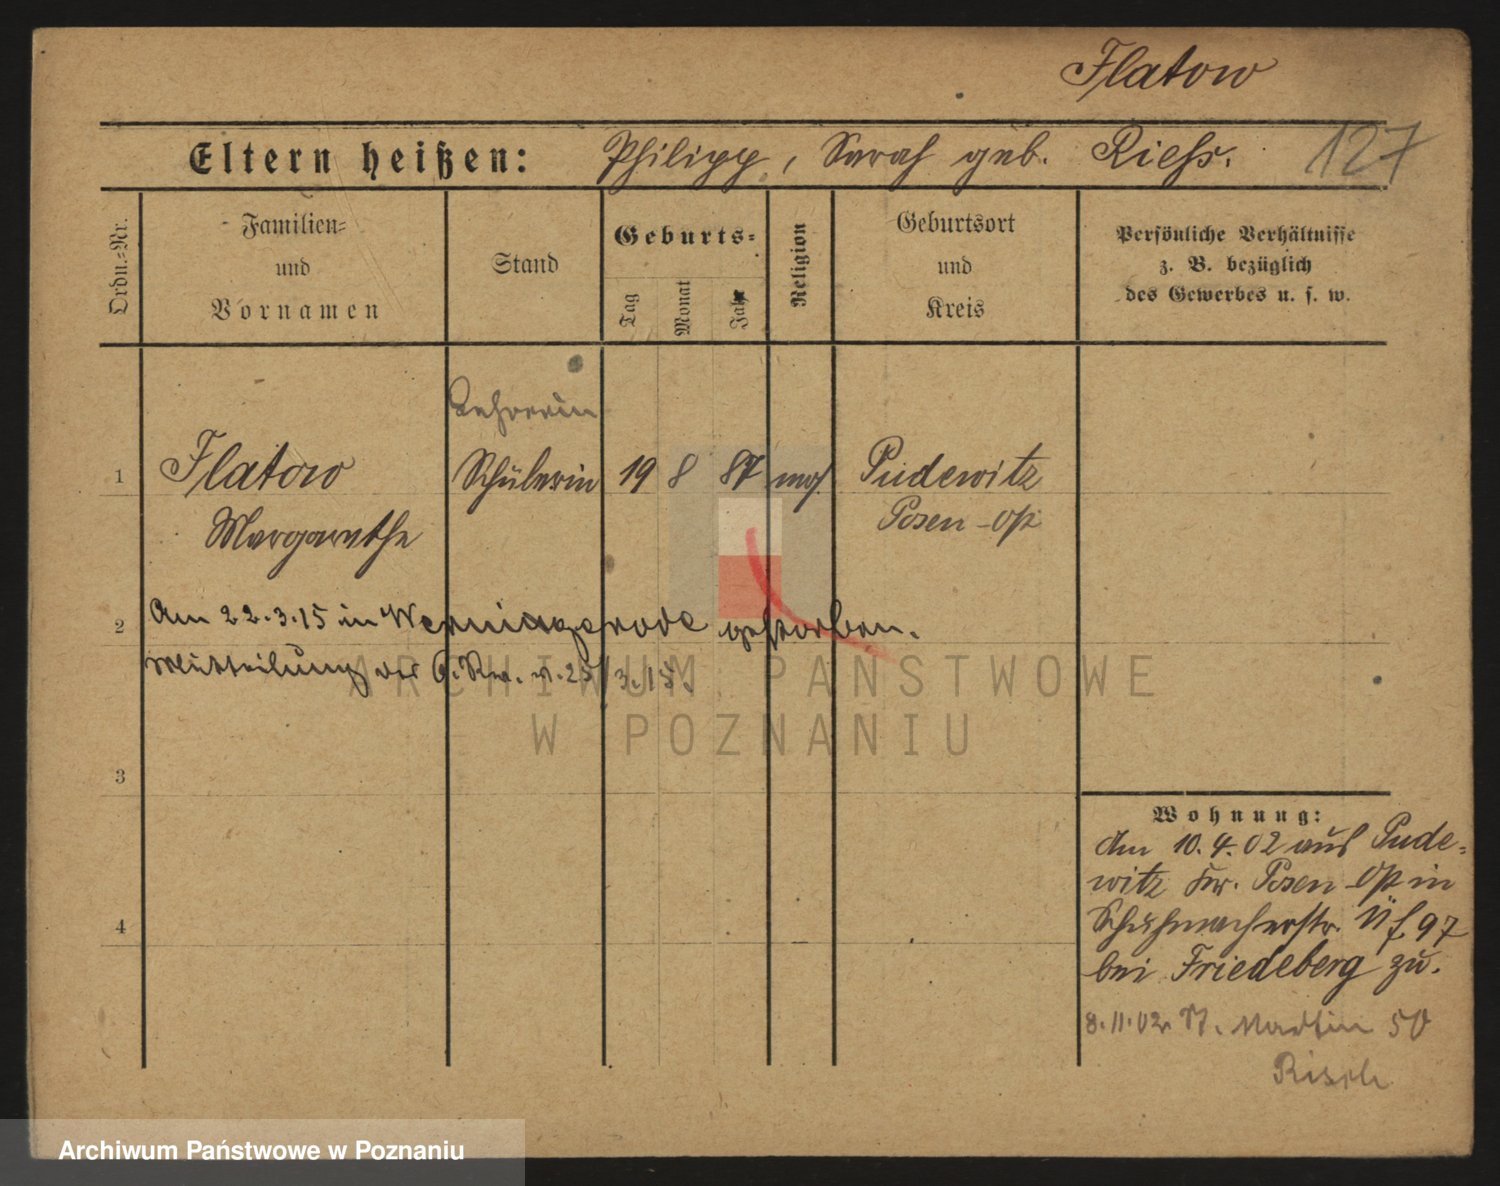 Flatow
127
Eltern heißen: Philipp, Sarah geb. Riess.
Ordn.-Nr.
Familien-
und
Vornamen
Stand
Geburts-
Tag
Monat
Jahr
Religion
Geburtsort
und
Kreis
Persönliche Verhältnisse
z. B. bezüglich
des Gewerbes u. s. w.
Lehrerin
1 Flatow Schülerin 19 8 87 mos. Pudewitz
Margarethe Posen-Op
2 Am 22.3.15 in Wernigerode gestorben.
Mitteilung der v. 25/3.15.
ARCHIWUM PAŃSTWOWE
W POZNANIU
3
4
Wohnung:
Am 10.4.02 aus Pude-
witz Kr. Posen-Op in
Schuhmacherstr. 97
bei Friedeberg zu.
8.11.02. St. Martin 50
Risch
Archiwum Państwowe w Poznaniu